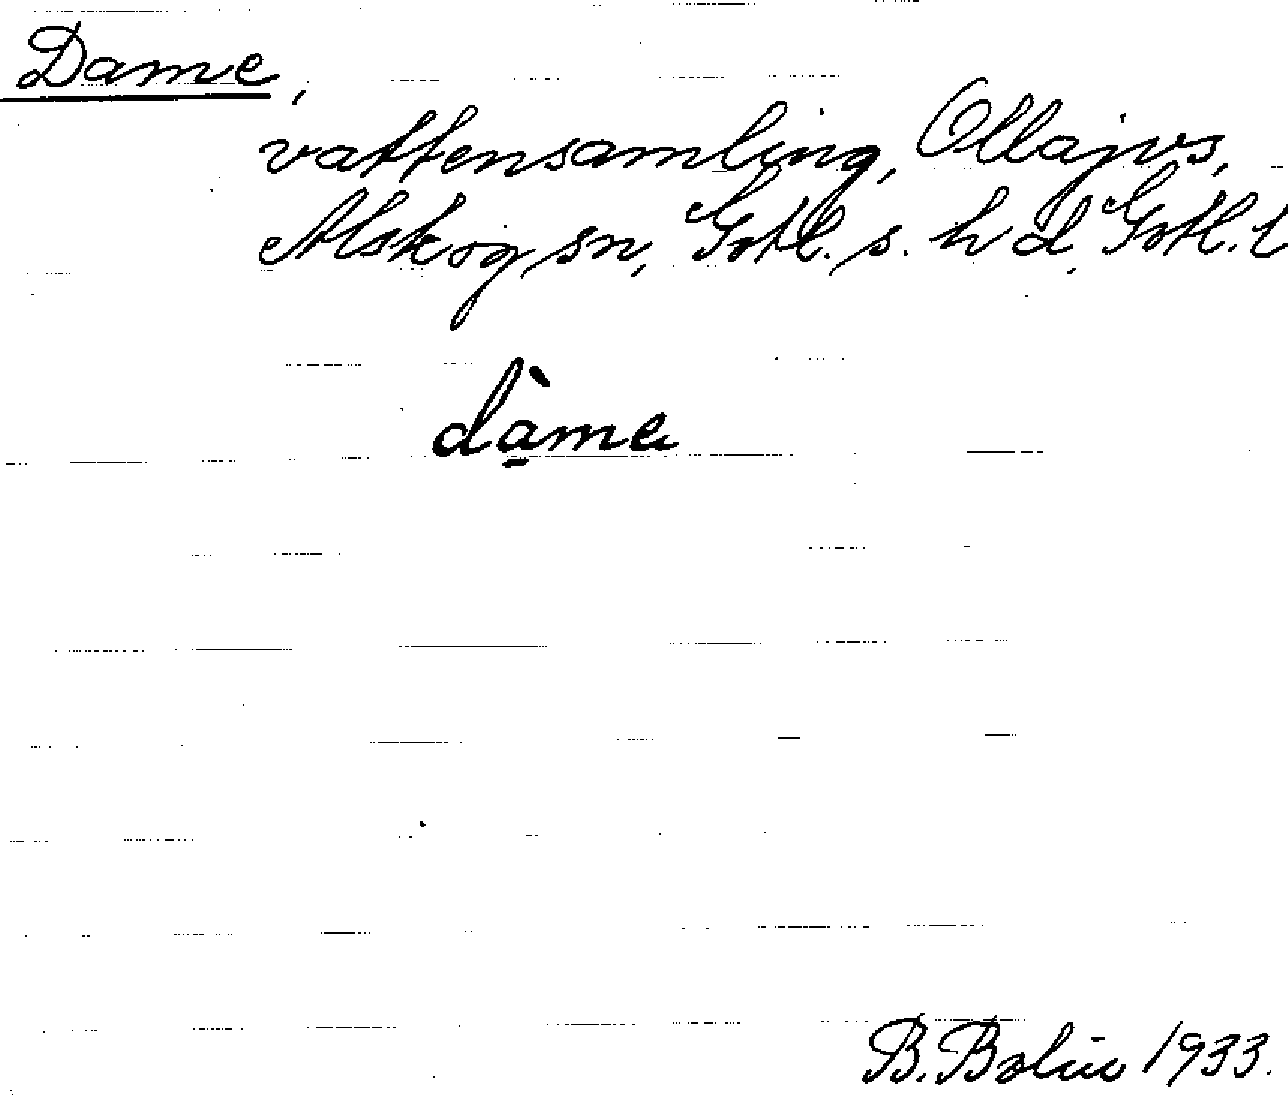 Dame,
vattensamling, Ollajvs,
Alskog sn, Gotl. s. hd, Gotl. l
dàme
B. Bolin 1933.